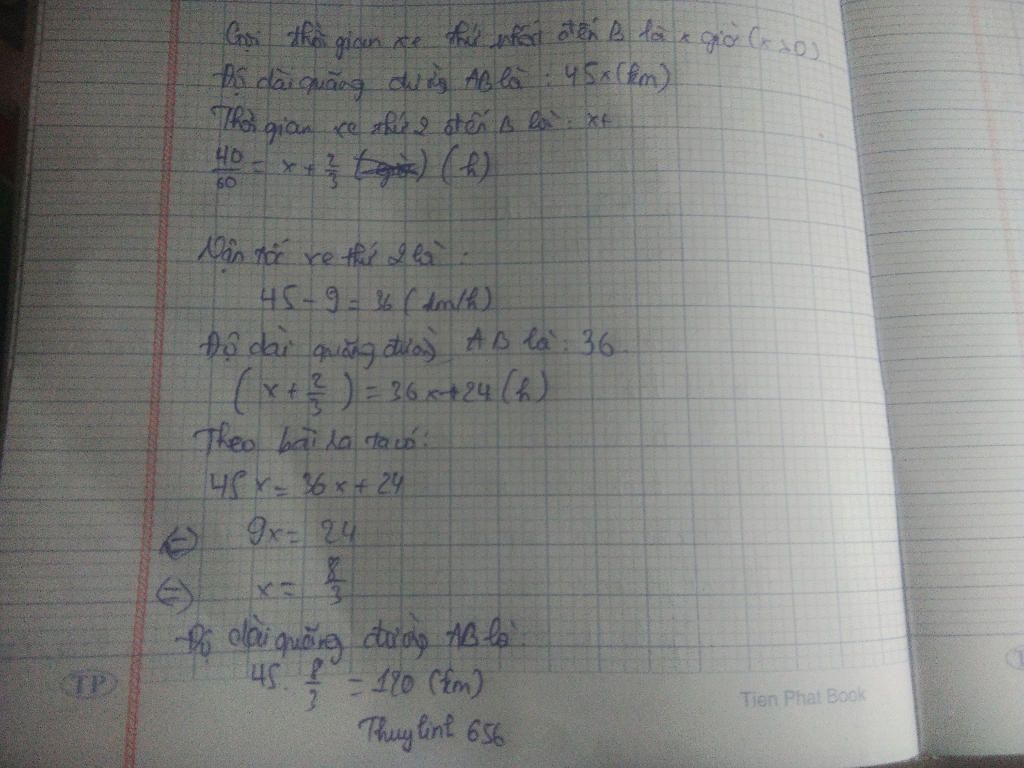 Gọi thời gian xe thứ nhất đến B là x giờ (x>0)
Độ dài quãng đường AB là : 45x (km)
Thời gian xe thứ 2 đến B là : x+
40/60 = x + 2/3 (h)
Vận tốc xe thứ 2 là :
45 - 9 = 36 (km/h)
Độ dài quãng đường AB là : 36.
(x + 2/3) = 36x+24 (h)
Theo bài ra ta có:
45x = 36x + 24
(=) 9x = 24
(=) x = 8/3
Độ dài quãng đường AB là:
45. 8/3 = 120 (km)
TP
Tien Phat Book
Thuylinh 656